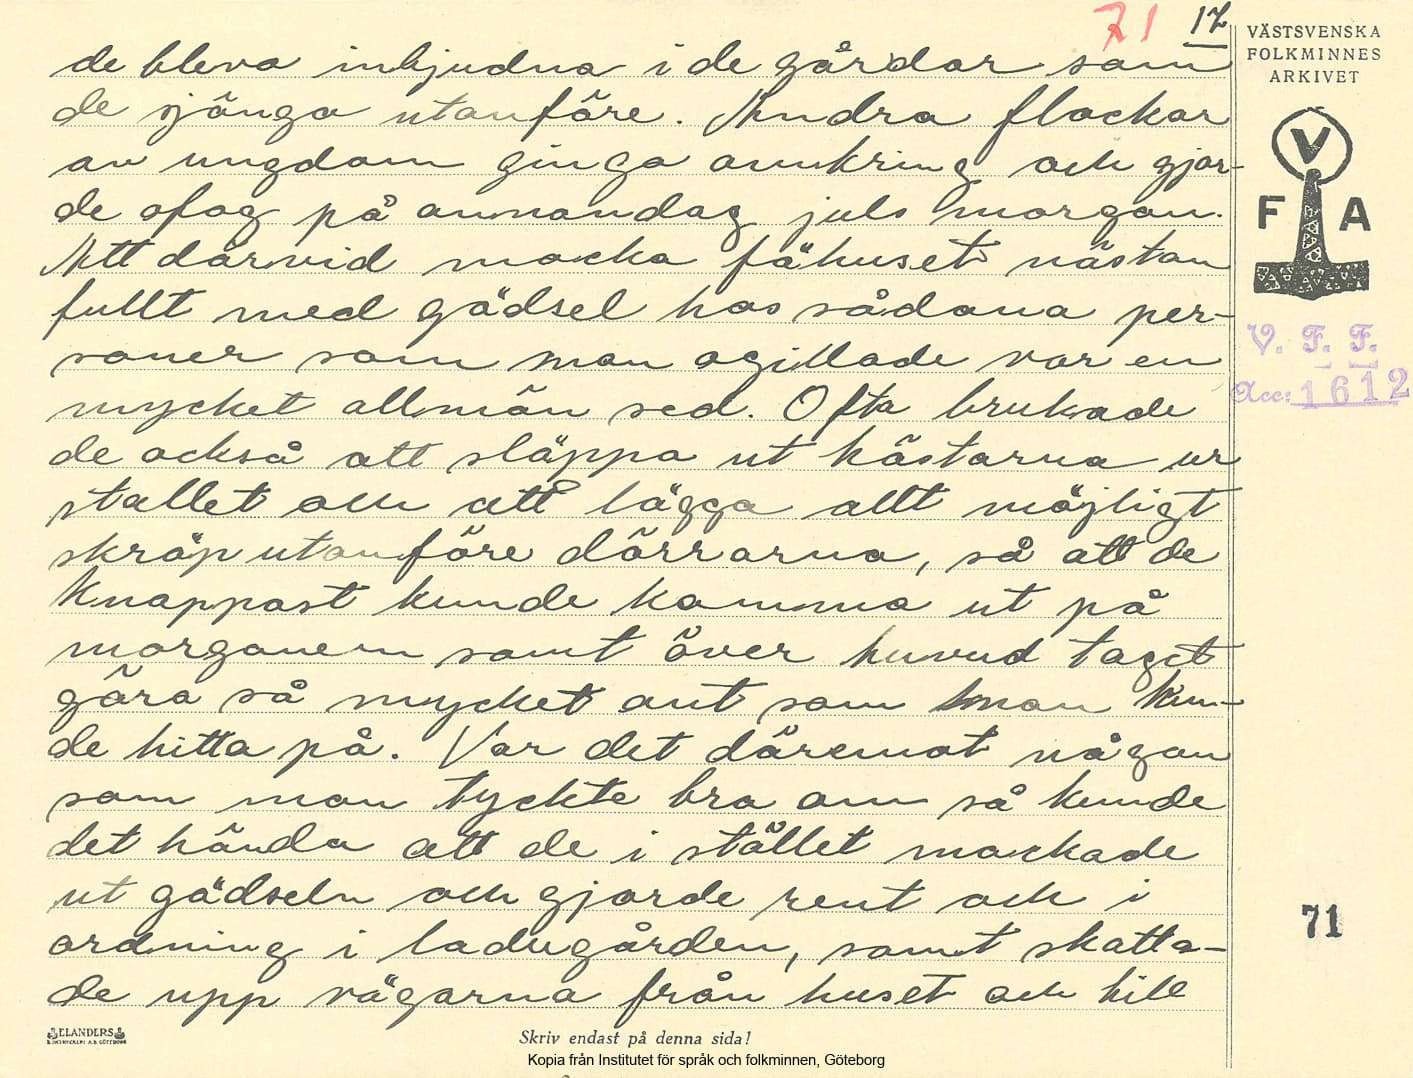 71 17
VÄSTSVENSKA
FOLKMINNES
ARKIVET
V
F A
V. F. F.
Acc: 1612
de bleva inbjudna i de gårdar som
de sjönga utanföre. Andra flockar
av ungdom ginga omkring och gjor-
de ofog på annandag juls morgon.
Att därvid mocka fähuset nästan
fullt med gödsel hos sådana per-
soner som man ogillade var en
mycket allmän sed. Ofta brukade
de också att släppa ut hästarna ur
stallet och att lägga allt möjligt
skräp utanföre dörrarna, så att de
knappast kunde komma ut på
morgonen samt över huvud taget
göra så mycket ont som man kun-
de hitta på. Var det däremot någon
som man tyckte bra om så kunde
det hända att de i stället mockade
ut gödseln och gjorde rent och i
ordning i ladugården, samt skotta-
de upp vägarna från huset och till
71
ELANDERS
BOKTRYCKERI A.B. GÖTEBORG
Skriv endast på denna sida!
Kopia från Institutet för språk och folkminnen, Göteborg